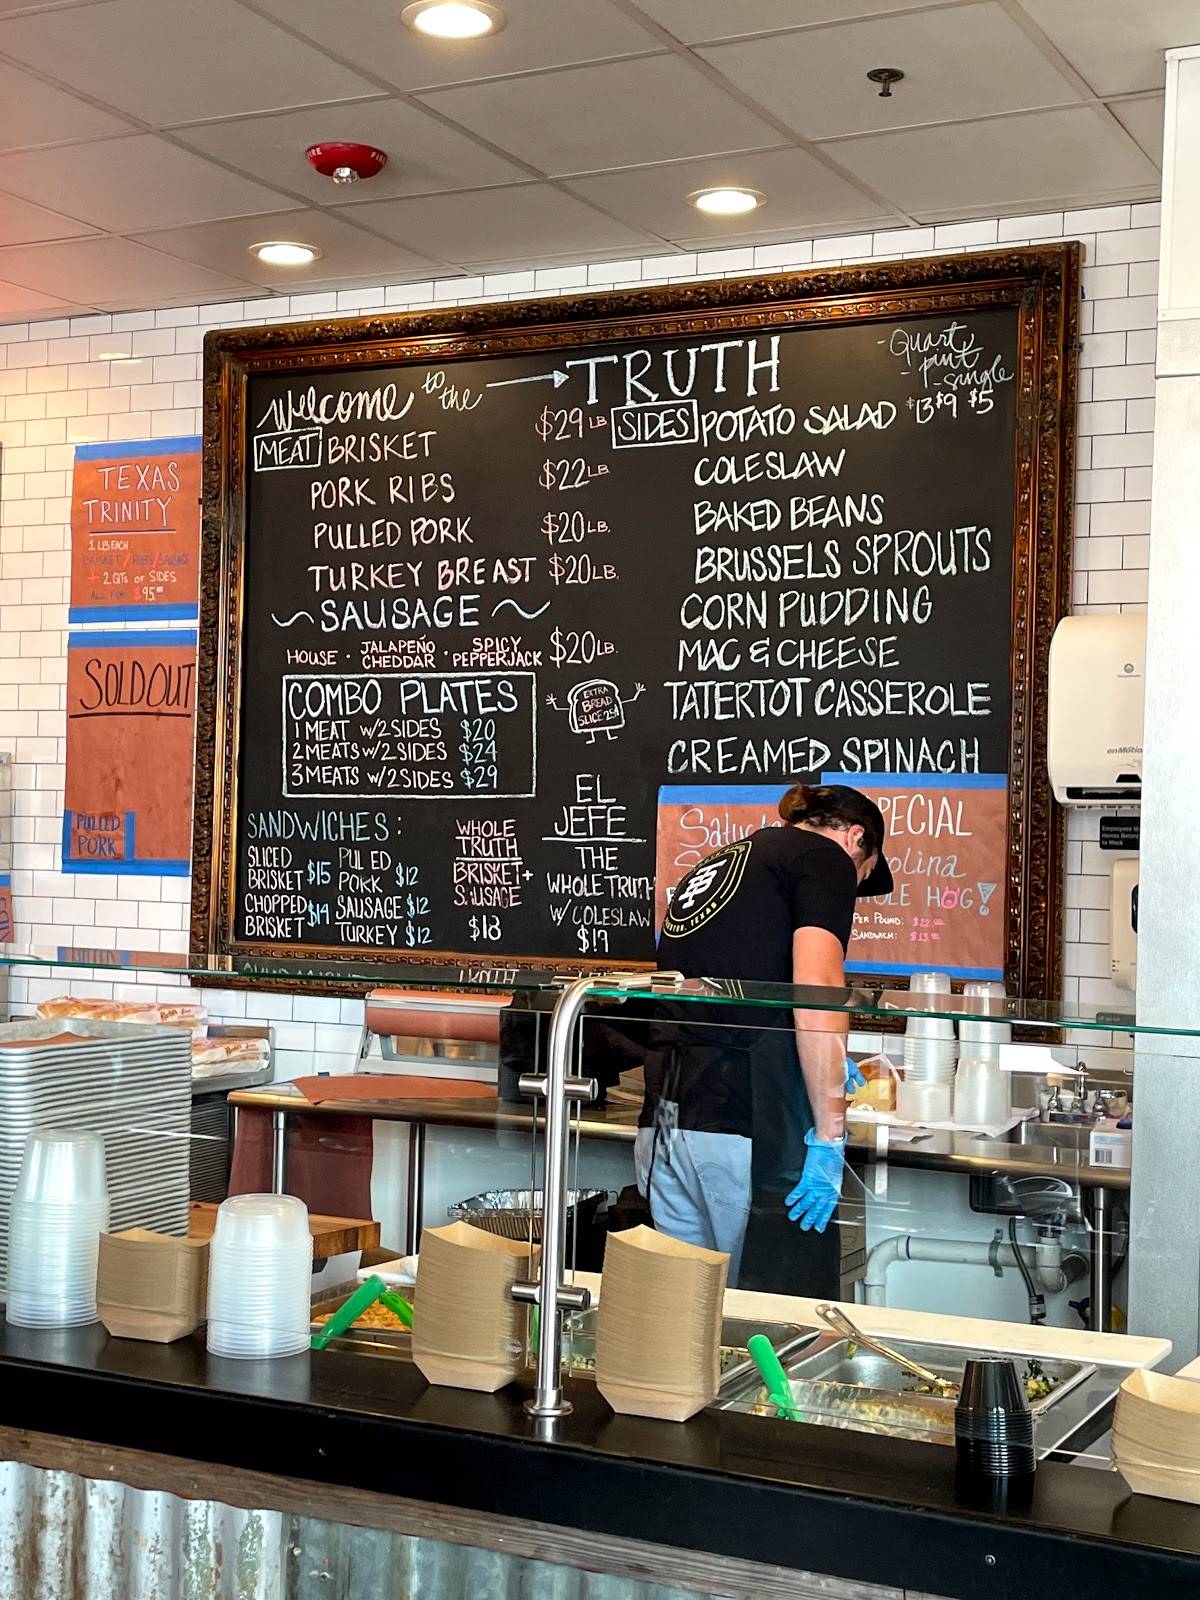 Welcome to the → TRUTH
- Quart
- pint
- single
$13 $9 $5
MEAT BRISKET $29 LB
PORK RIBS $22 LB
PULLED PORK $20 LB.
TURKEY BREAST $20 LB.
~SAUSAGE~
HOUSE · JALAPEÑO CHEDDAR · SPICY PEPPERJACK $20 LB.
COMBO PLATES
1 MEAT W/2 SIDES $20
2 MEATS W/2 SIDES $24
3 MEATS W/2 SIDES $29
EXTRA
BREAD
SLICE 25¢
SANDWICHES:
SLICED BRISKET $15
CHOPPED BRISKET $14
PUL ED PORK $12
SAUSAGE $12
TURKEY $12
WHOLE
TRUTH
BRISKET+
SAUSAGE
$18
EL
JEFE
THE
WHOLE TRUTH
W/ COLESLAW
$19
SIDES POTATO SALAD
COLESLAW
BAKED BEANS
BRUSSELS SPROUTS
CORN PUDDING
MAC & CHEESE
TATERTOT CASSEROLE
CREAMED SPINACH
PECIAL
olina
LE HOG!
PER POUND: $22
SANDWICH: $13
TEXAS
TRINITY
1 LB EACH:
BRISKET/RIBS/SAUSAGE
+ 2 QTS OF SIDES
ALL FOR $95.00
SOLD OUT
PULLED
PORK
FIRE
enMotion
Employees Must
Wash Hands Before